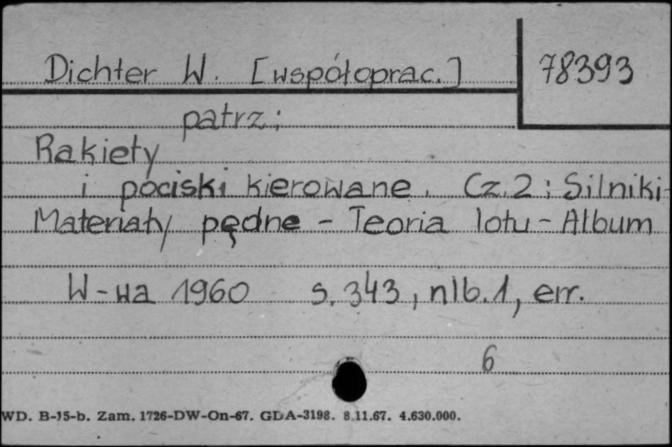 Dichter W. [współoprac.] 78393
patrz:
Rakiety
i pociski kierowane. Cz. 2: Silniki-
Materiały pędne - Teoria lotu - Album
W-wa 1960 s. 343, nlb. 1, err.
6
WD. B-15-b. Zam. 1726-DW-On-67. GDA-3198. 8.11.67. 4.630.000.